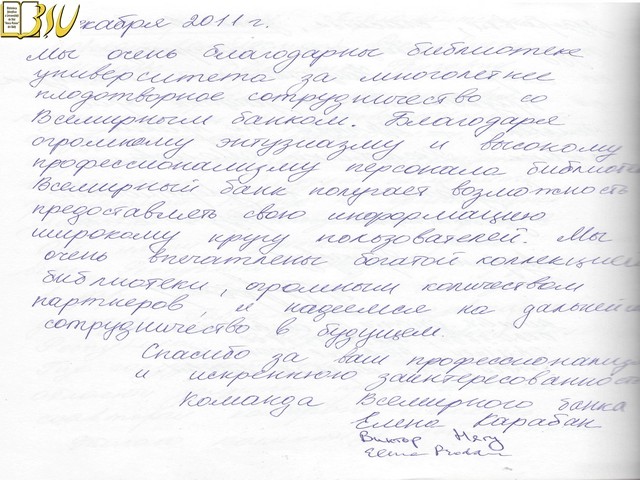 BSU
декабря 2011 г.
Мы очень благодарны библиотеке
университета за многолетнее
плодотворное сотрудничество со
Всемирным банком. Благодаря
огромному энтузиазму и высокому
профессионализму персонала библиоте
Всемирный банк получает возможность
предоставлять свою информацию
широкому кругу пользователей. Мы
очень впечатлены богатой коллекцией
библиотеки, огромным количеством
партнеров, и надеемся на дальней
сотрудничество в будущем.
Спасибо за ваш профессионализ
и искреннюю заинтересованност
Команда Всемирного банка
Елена Карабан
Виктор Нягу